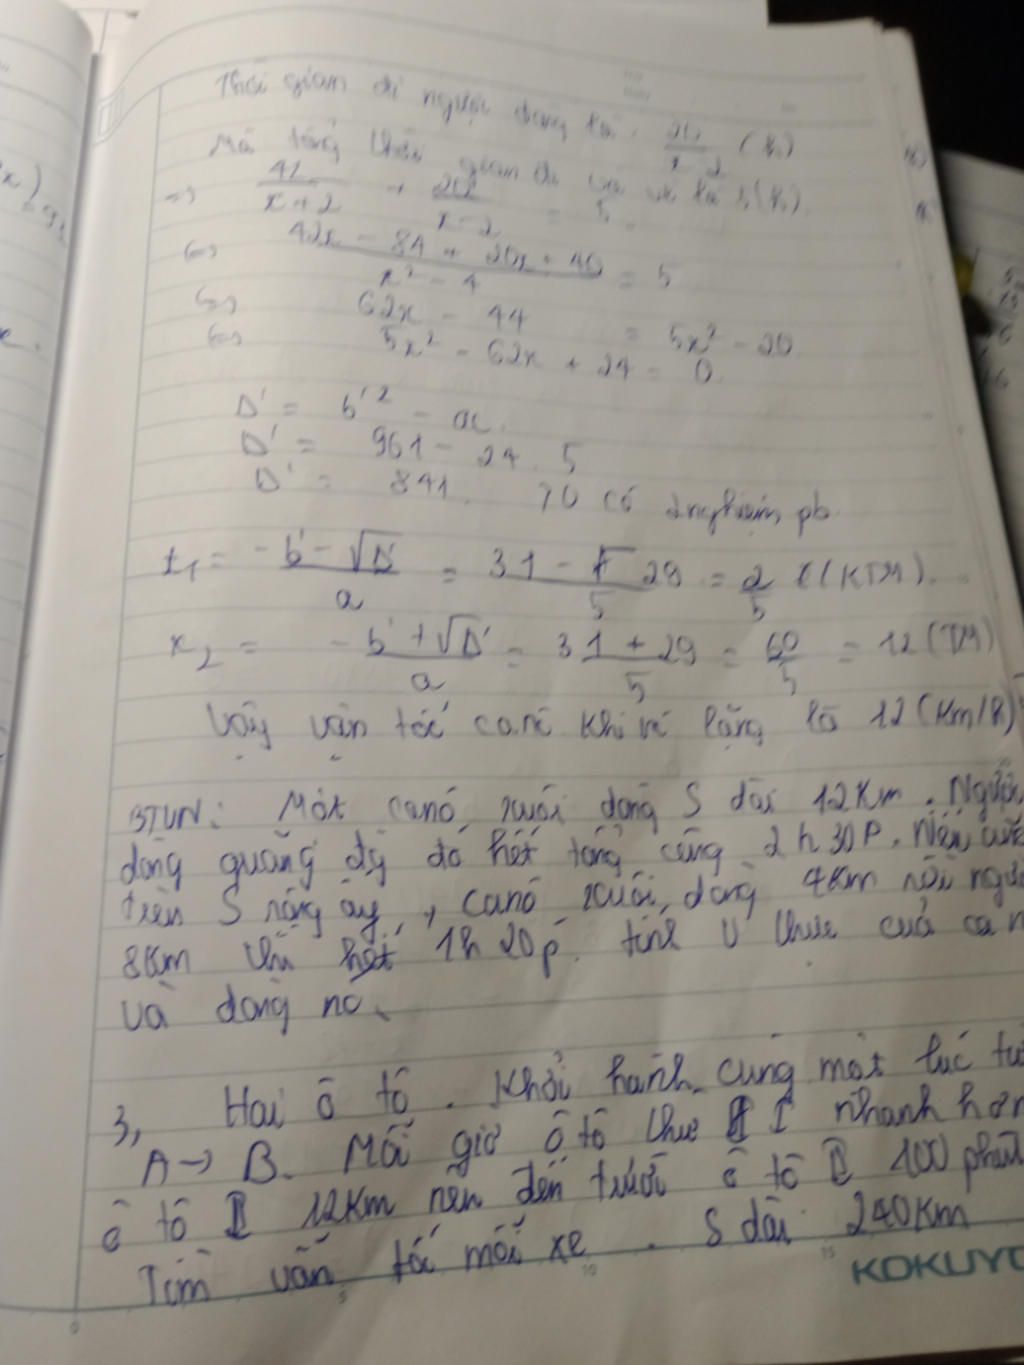 Thời gian đi ngược dòng là: 20/(x - 2) (h)
Mà tổng thời gian đi và về là 5 (h).
=> 42/(x + 2) + 20/(x - 2) = 5.
<=> (42x - 84 + 20x + 40)/(x² - 4) = 5
<=> 62x - 44 = 5x² - 20
<=> 5x² - 62x + 24 = 0.
Δ' = b'² - ac.
Δ' = 961 - 24 . 5
Δ' = 841. > 0 có 2 nghiệm pb
x₁ = (-b' - √Δ')/a = (31 - 29)/5 = 2/5 (KTM).
x₂ = (-b' + √Δ')/a = (31 + 29)/5 = 60/5 = 12 (TM)
Vậy vận tốc canô khi lặng là 12 (Km/h)
BTVN: Một canô xuôi dòng S dài 12Km. Ngược
dòng quãng ấy đó hết tổng cộng 2h30P. Nếu cũng
trên S sông ấy, canô xuôi dòng 4Km rồi ngược
8Km thì hết 1h20p. tính V thực của ca n
và dòng nó.
3, Hai ô tô. Khởi hành cùng một lúc từ
A -> B. Mỗi giờ ô tô thứ I nhanh hơn
ô tô II 12Km nên đến trước ô tô II 100 phút
Tìm vận tốc mỗi xe. S dài 240Km
KOKUYO
5 10 15